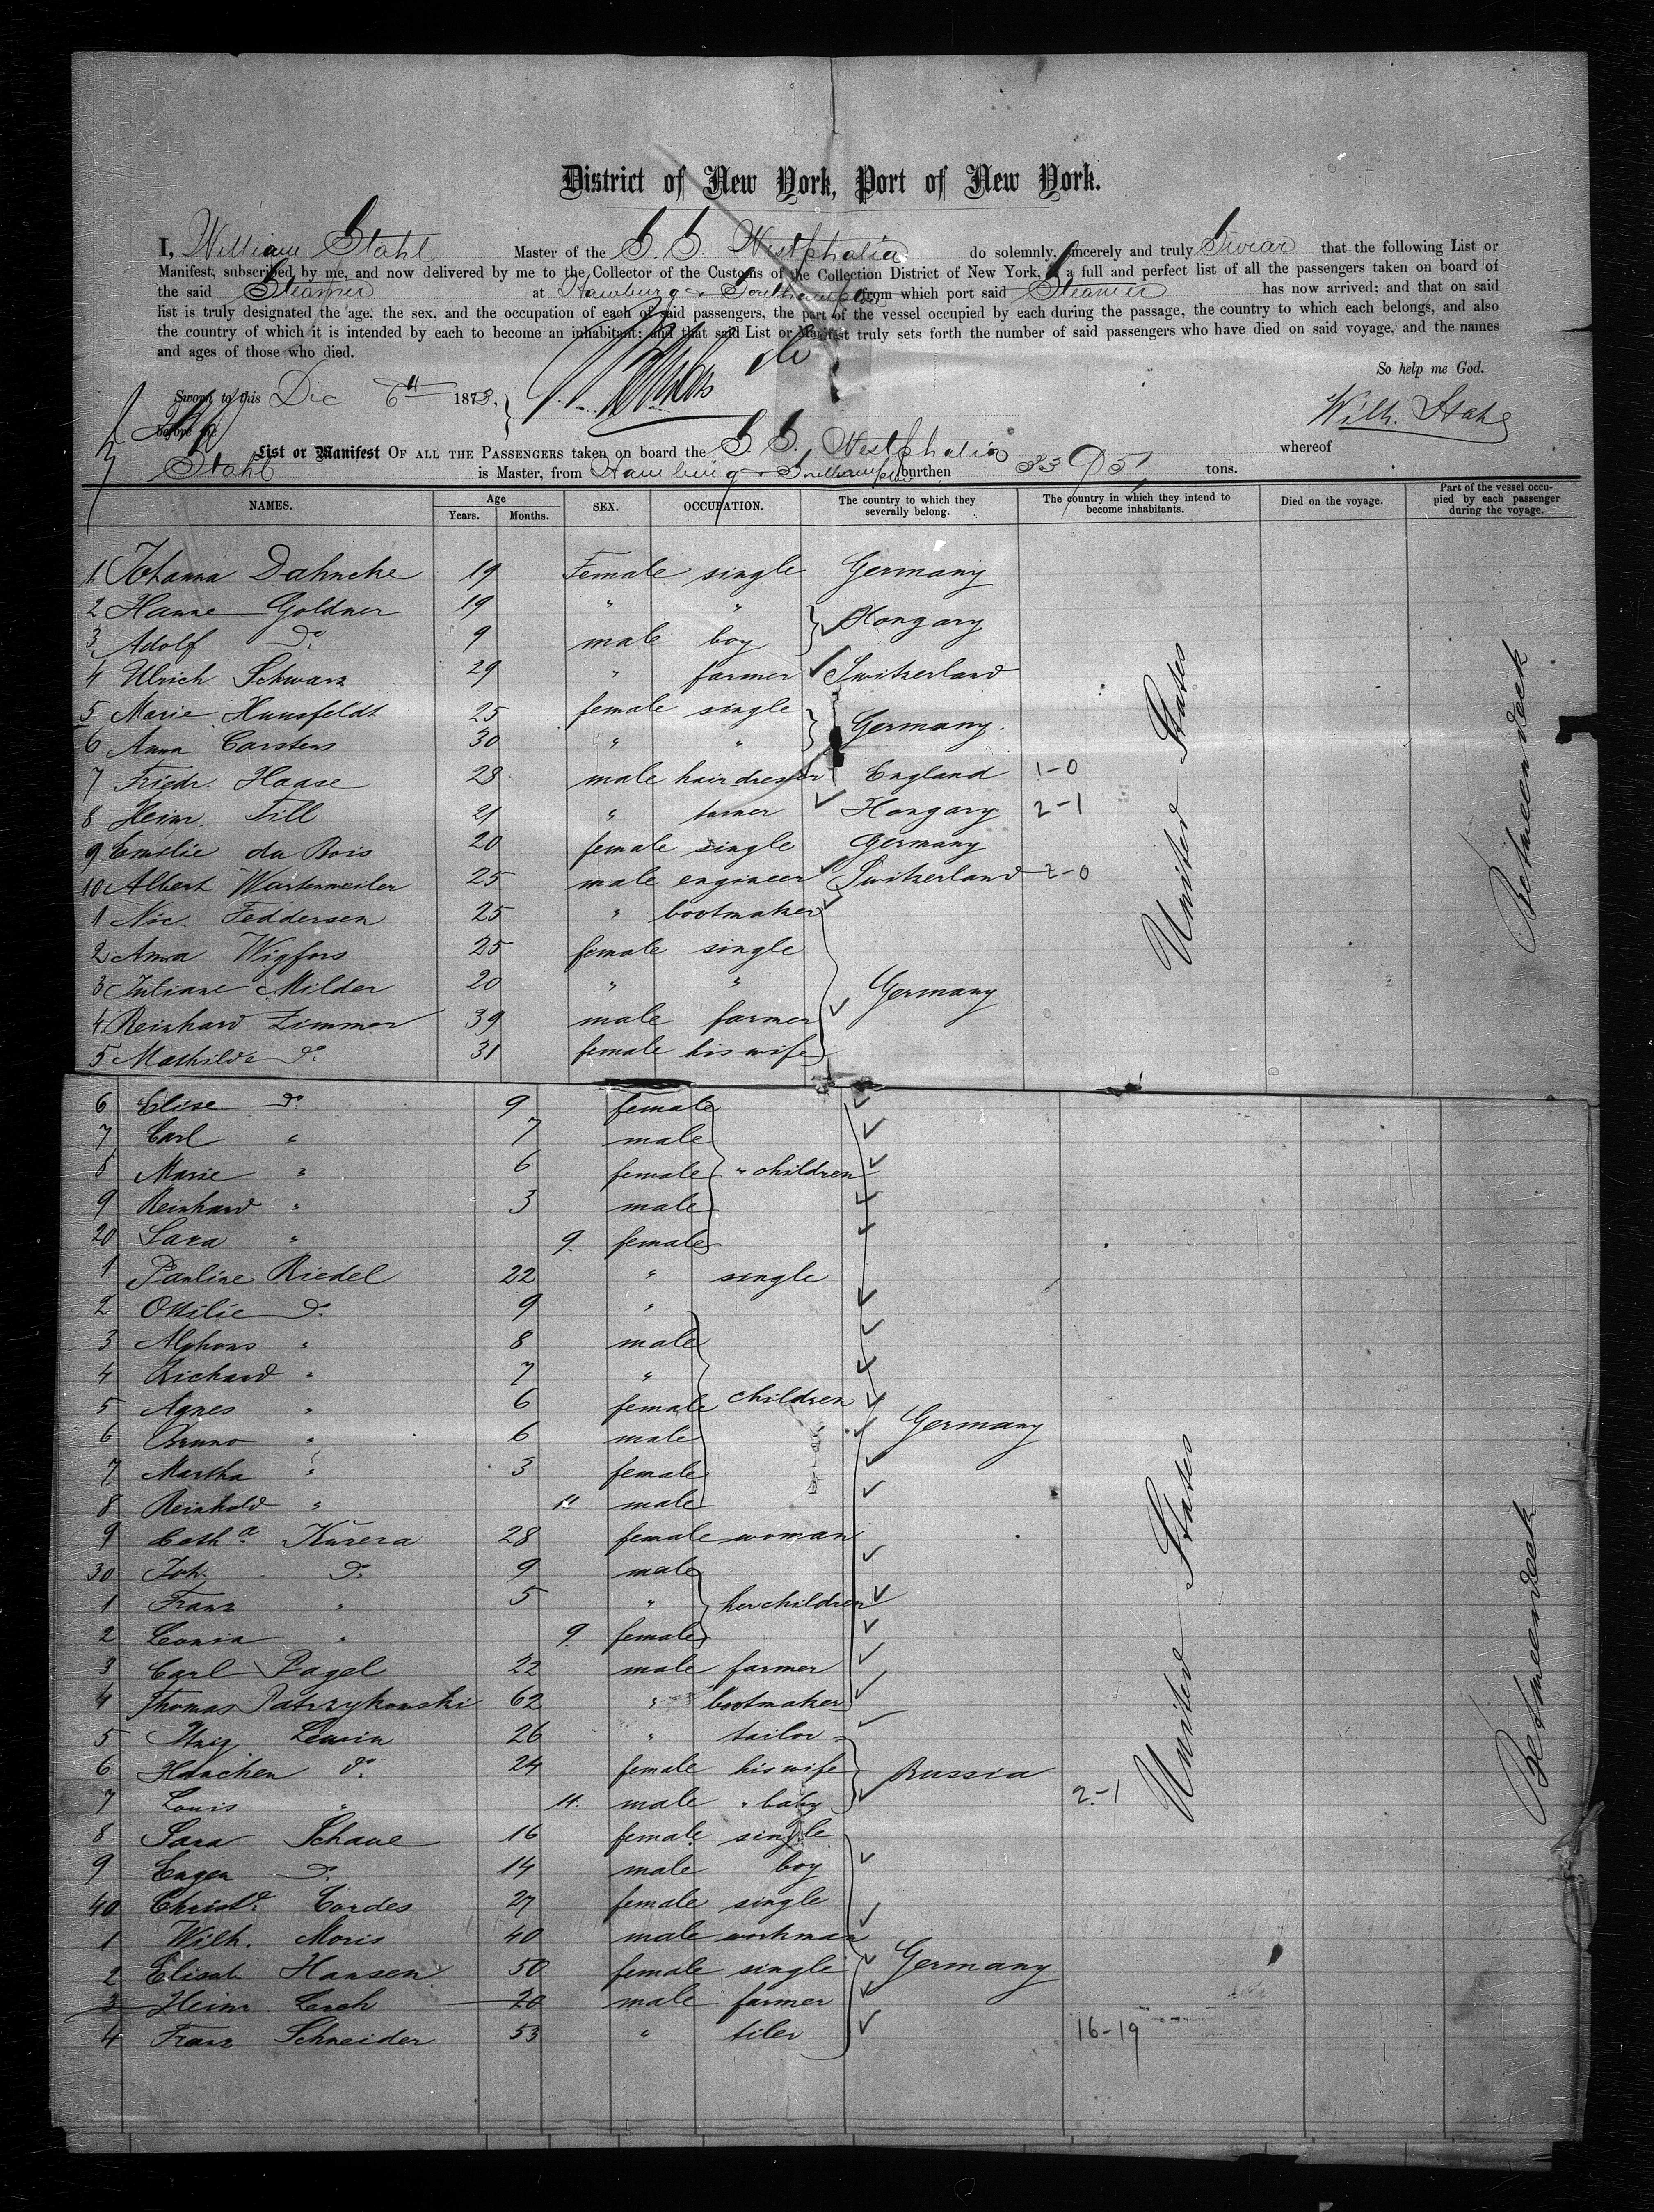 District of New York, Port of New York.
I, William Stahl Master of the S. S. Westphalia do solemnly, sincerely and truly Swear that the following List or
Manifest, subscribed by me, and now delivered by me to the Collector of the Customs of the Collection District of New York, is a full and perfect list of all the passengers taken on board of
the said Steamer at Hamburg & Southampton from which port said Steamer has now arrived; and that on said
list is truly designated the age, the sex, and the occupation of each of said passengers, the part of the vessel occupied by each during the passage, the country to which each belongs, and also
the country of which it is intended by each to become an inhabitant; and that said List or Manifest truly sets forth the number of said passengers who have died on said voyage, and the names
and ages of those who died.
So help me God.
Sworn to this Dec 6th 1873,
before me
Wilh. Stahl
List or Manifest OF ALL THE PASSENGERS taken on board the S. S. Westphalia whereof
Stahl is Master, from Hamburg & Southampton burthen 3395 tons.
NAMES. Age Years. Months. SEX. OCCUPATION. The country to which they severally belong. The country in which they intend to become inhabitants. Died on the voyage. Part of the vessel occupied by each passenger during the voyage.
1 Johanna Dahncke 19 Female single Germany
2 Hanne Goldner 19 " "
Hongary
3 Adolf do. 9 male boy
4 Ulrich Schwarz 29 " farmer Switzerland
5 Marie Hunsfeldt 25 female single
Germany.
6 Anna Carstens 30 " "
7 Friedr. Haase 28 male hair dresser England 1-0
8 Heinr. Till 21 " turner Hongary 2-1
9 Emilie du Bois 20 female single Germany
10 Albert Wartenweiler 25 male engineer Switzerland 2-0
1 Nic. Feddersen 25 " bootmaker
2 Anna Wigfors 25 female single
3 Juliane Milder 20 " " Germany
4 Reinhard Zimmer 39 male farmer
5 Mathilde do. 31 female his wife
United States
Between deck
6 Elise do. 9 female
7 Carl " 7 male
8 Marie " 6 female " children
9 Reinhard " 3 male
20 Sara " 9. female
1 Pauline Riedel 22 " single
2 Ottilie do. 9 "
3 Alphons " 8 male
4 Richard " 7 "
5 Agnes " 6 female children
6 Bruno " 6 male Germany
7 Martha " 3 female
8 Reinhold " 11 male
9 Catha. Kusera 28 female woman
30 Joh. do. 9 male
1 Franz " 5 " her children
2 " 9 female
3 Carl Pagel 22 male farmer
4 Thomas Patrzykowski 62 " bootmaker
5 Lewin 26 " tailor
6 Hanchen do. 24 female his wife Russia
7 Louis " 11. male " baby 2-1
8 Sara Schaue 16 female single
9 Eugen do. 14 male boy
40 Christe. Cordes 27 female single
1 Wilh. Moris 40 male workman
2 Elisab. Hansen 50 female single Germany
3 Heinr. Lerch 20 male farmer
4 Franz Schneider 53 " tiler 16-19
United States
Between deck